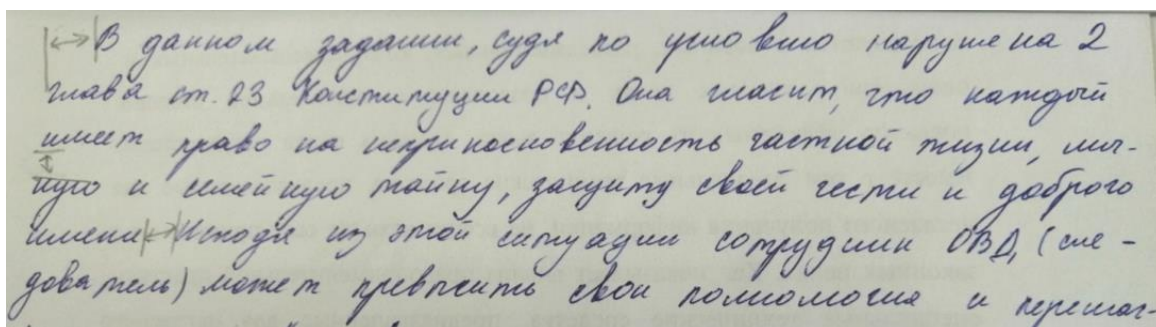 В данном задании, судя по условию нарушена 2
глава ст. 23 Конституции РФ. Она гласит, что каждый
имеет право на неприкосновенность частной жизни, лич-
ную и семейную тайну, защиту своей чести и доброго
имени. Исходя из этой ситуации сотрудник ОВД, (сле-
дователь) может превысить свои полномочия и перешаг-